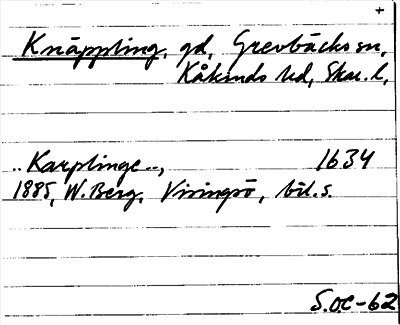 +
Knäppling, gd, Grevbäcks sn,
Kåkinds hd, Skar. l,
..Karplinge.., 1634
1885, W. Berg, Visingsö, bil. s.
S.O.C-62